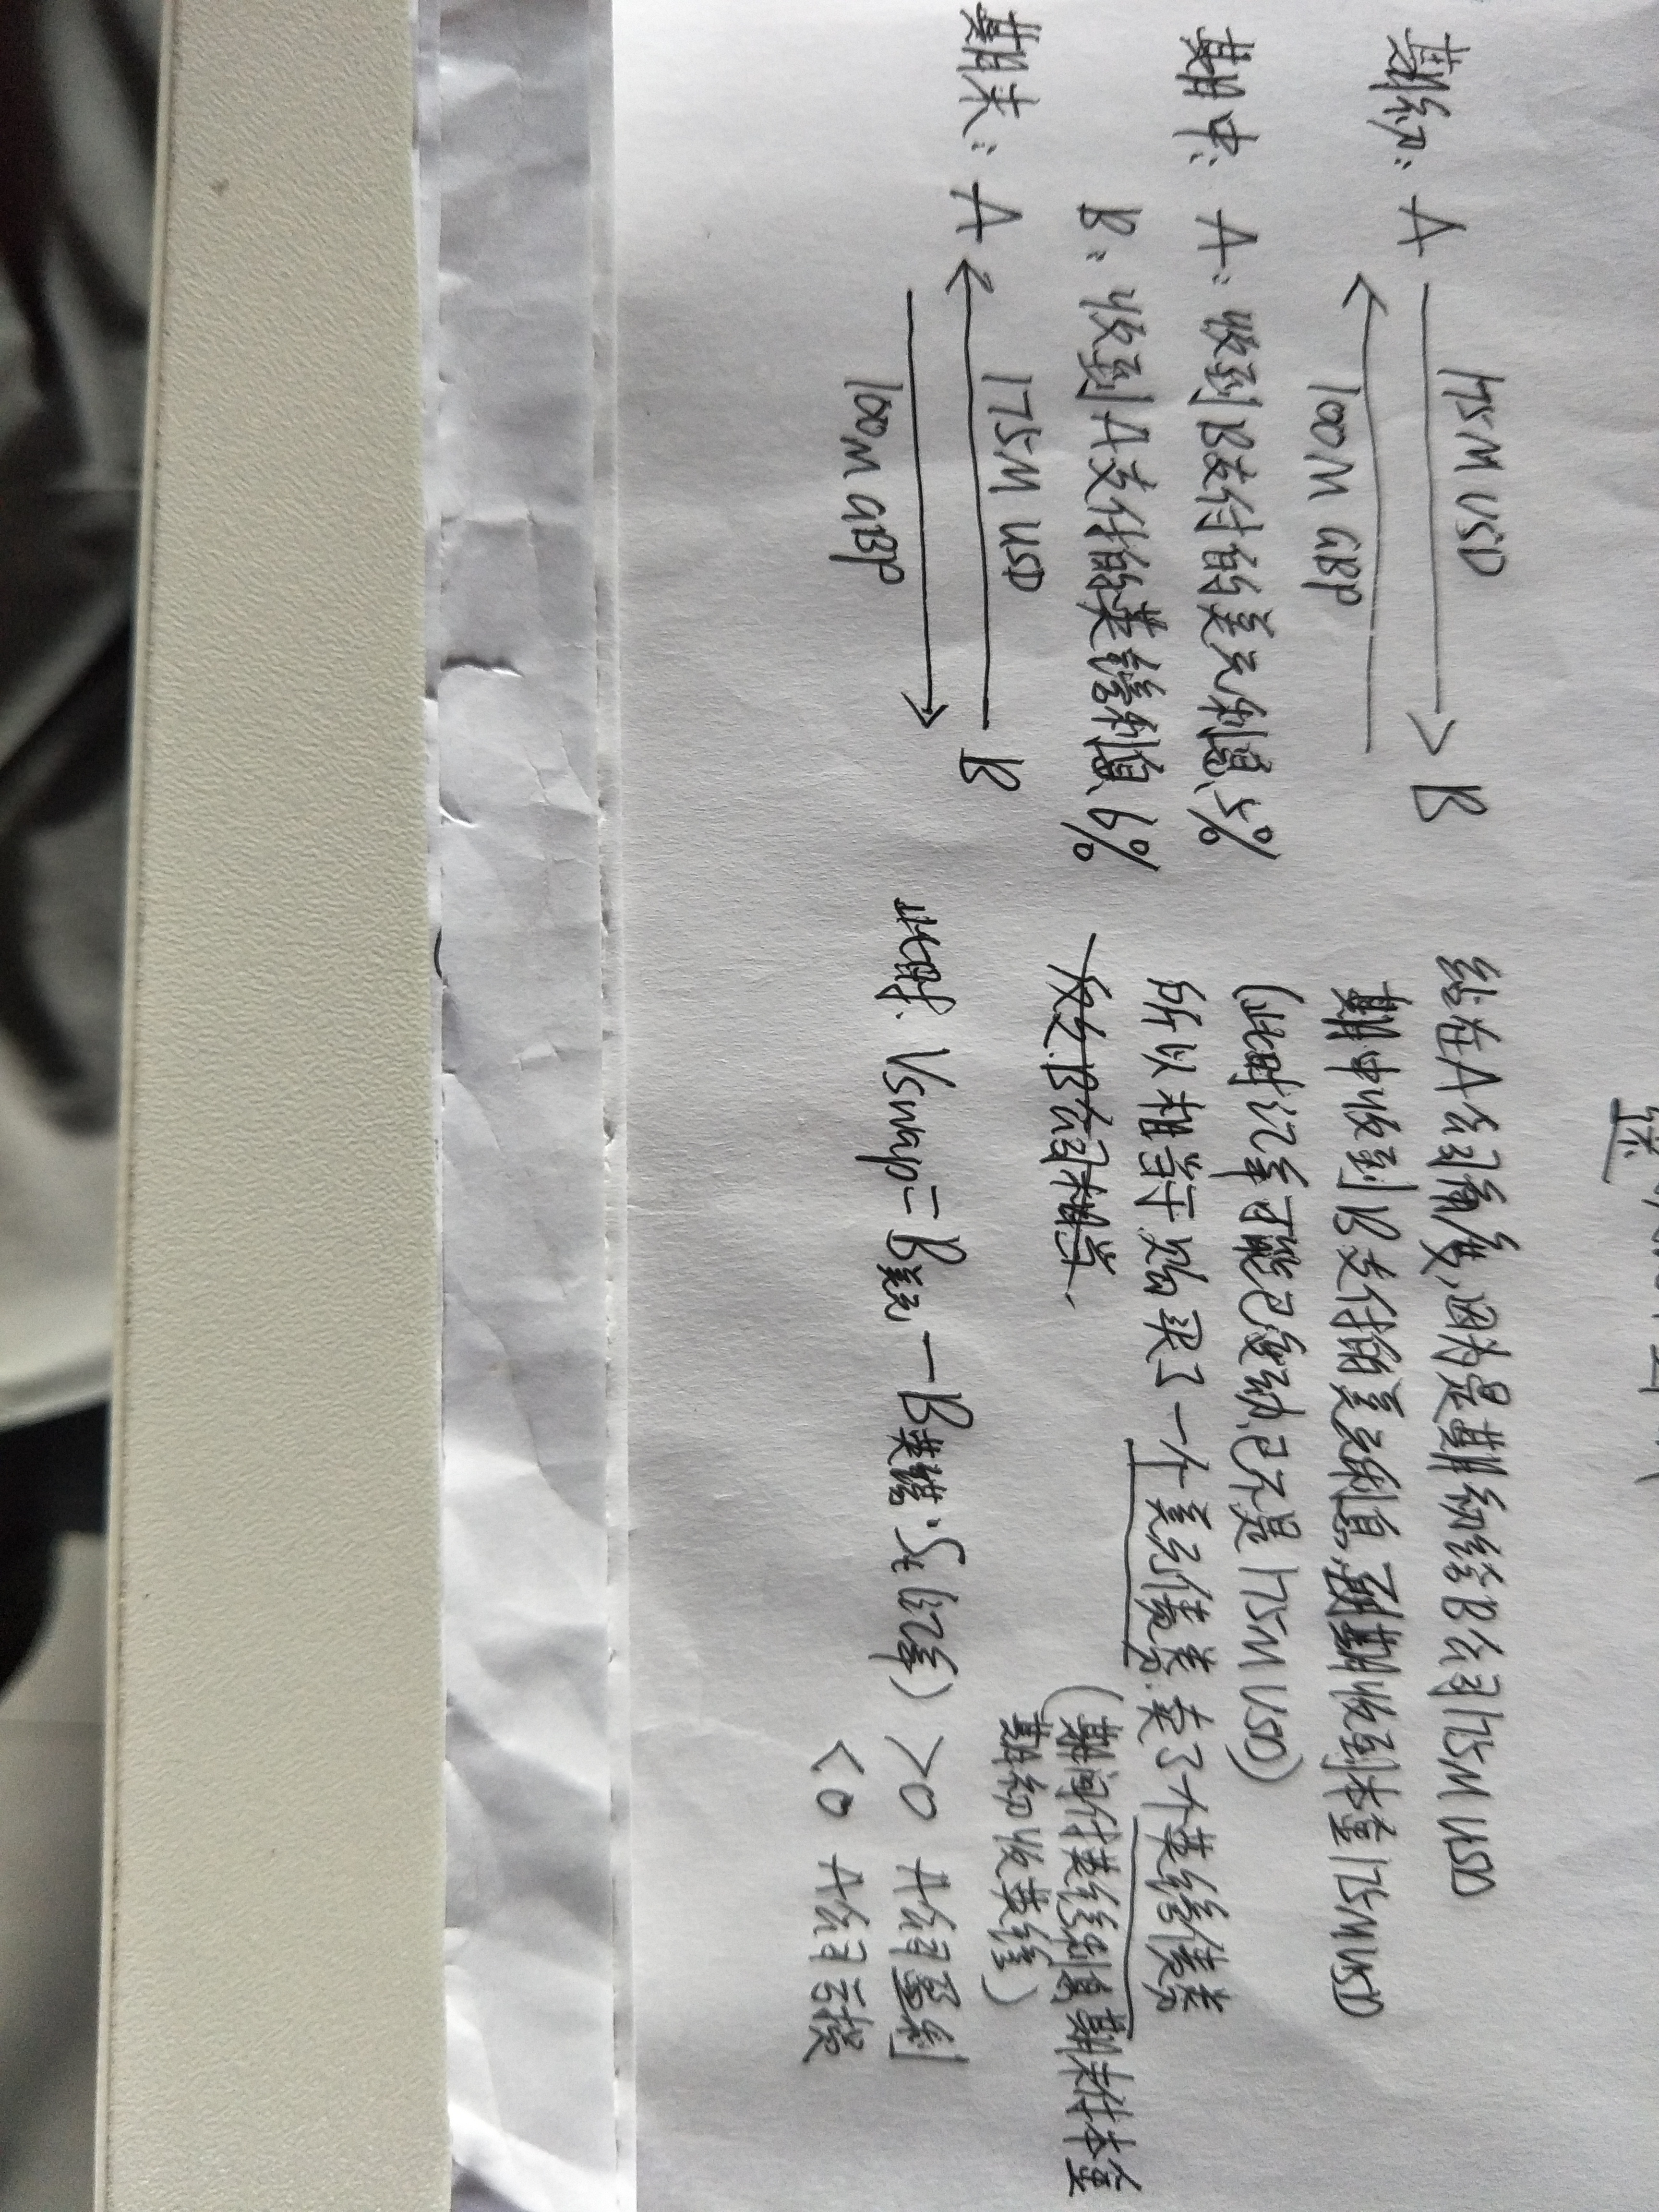 期初: A 175M USD B
100M GBP
期中: A: 收到B支付的美元利息5%
B: 收到A支付的英镑利息6%
期末: A 175M USD B
100M GBP
站在A公司角度,因为是期初给B公司175M USD
期中收到B支付的美元利息,到期收到本金175M USD
(此时汇率可能已变动,已不是175M USD)
所以相当于购买了一个美元债券.卖了个英镑债券
(期间付英镑利息期末付本金
期初收英镑)
反之.B公司相当
此时 Vswap=B美元-B英镑·St(汇率) >0 A公司盈利
<0 A公司亏损